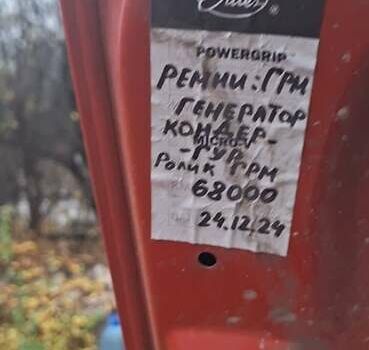 Gates ®
POWERGRIP
РЕМНИ: ГРМ
ГЕНЕРАТОР
КОНДЕР-
MICRO-V
-ГУР
РОЛИК ГРМ
68000
24.12.24